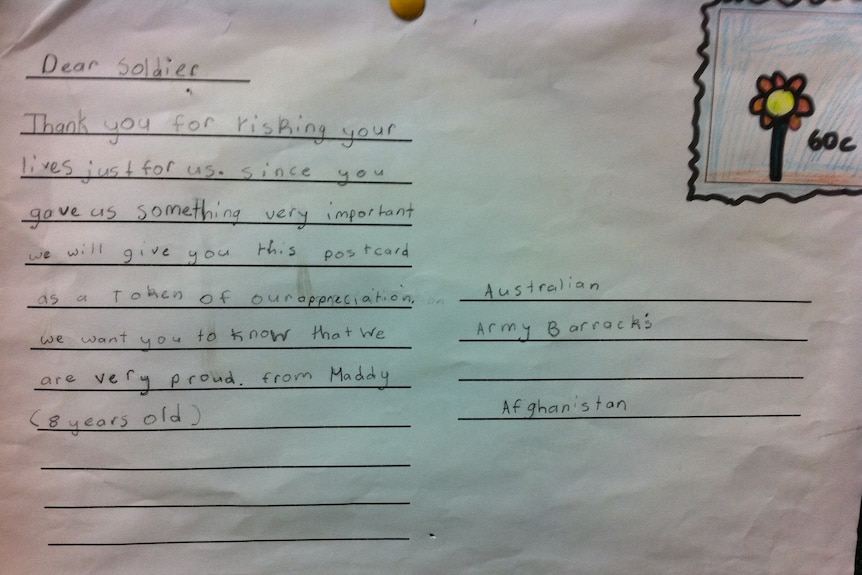 Dear Soldier
Thank you for risking your
lives just for us. since you
gave us something very important
we will give you this postcard
as a Token of our appreciation.
we want you to know that we
are very proud. from Maddy
(8 years old)
60c
Australian
Army Barracks
Afghanistan